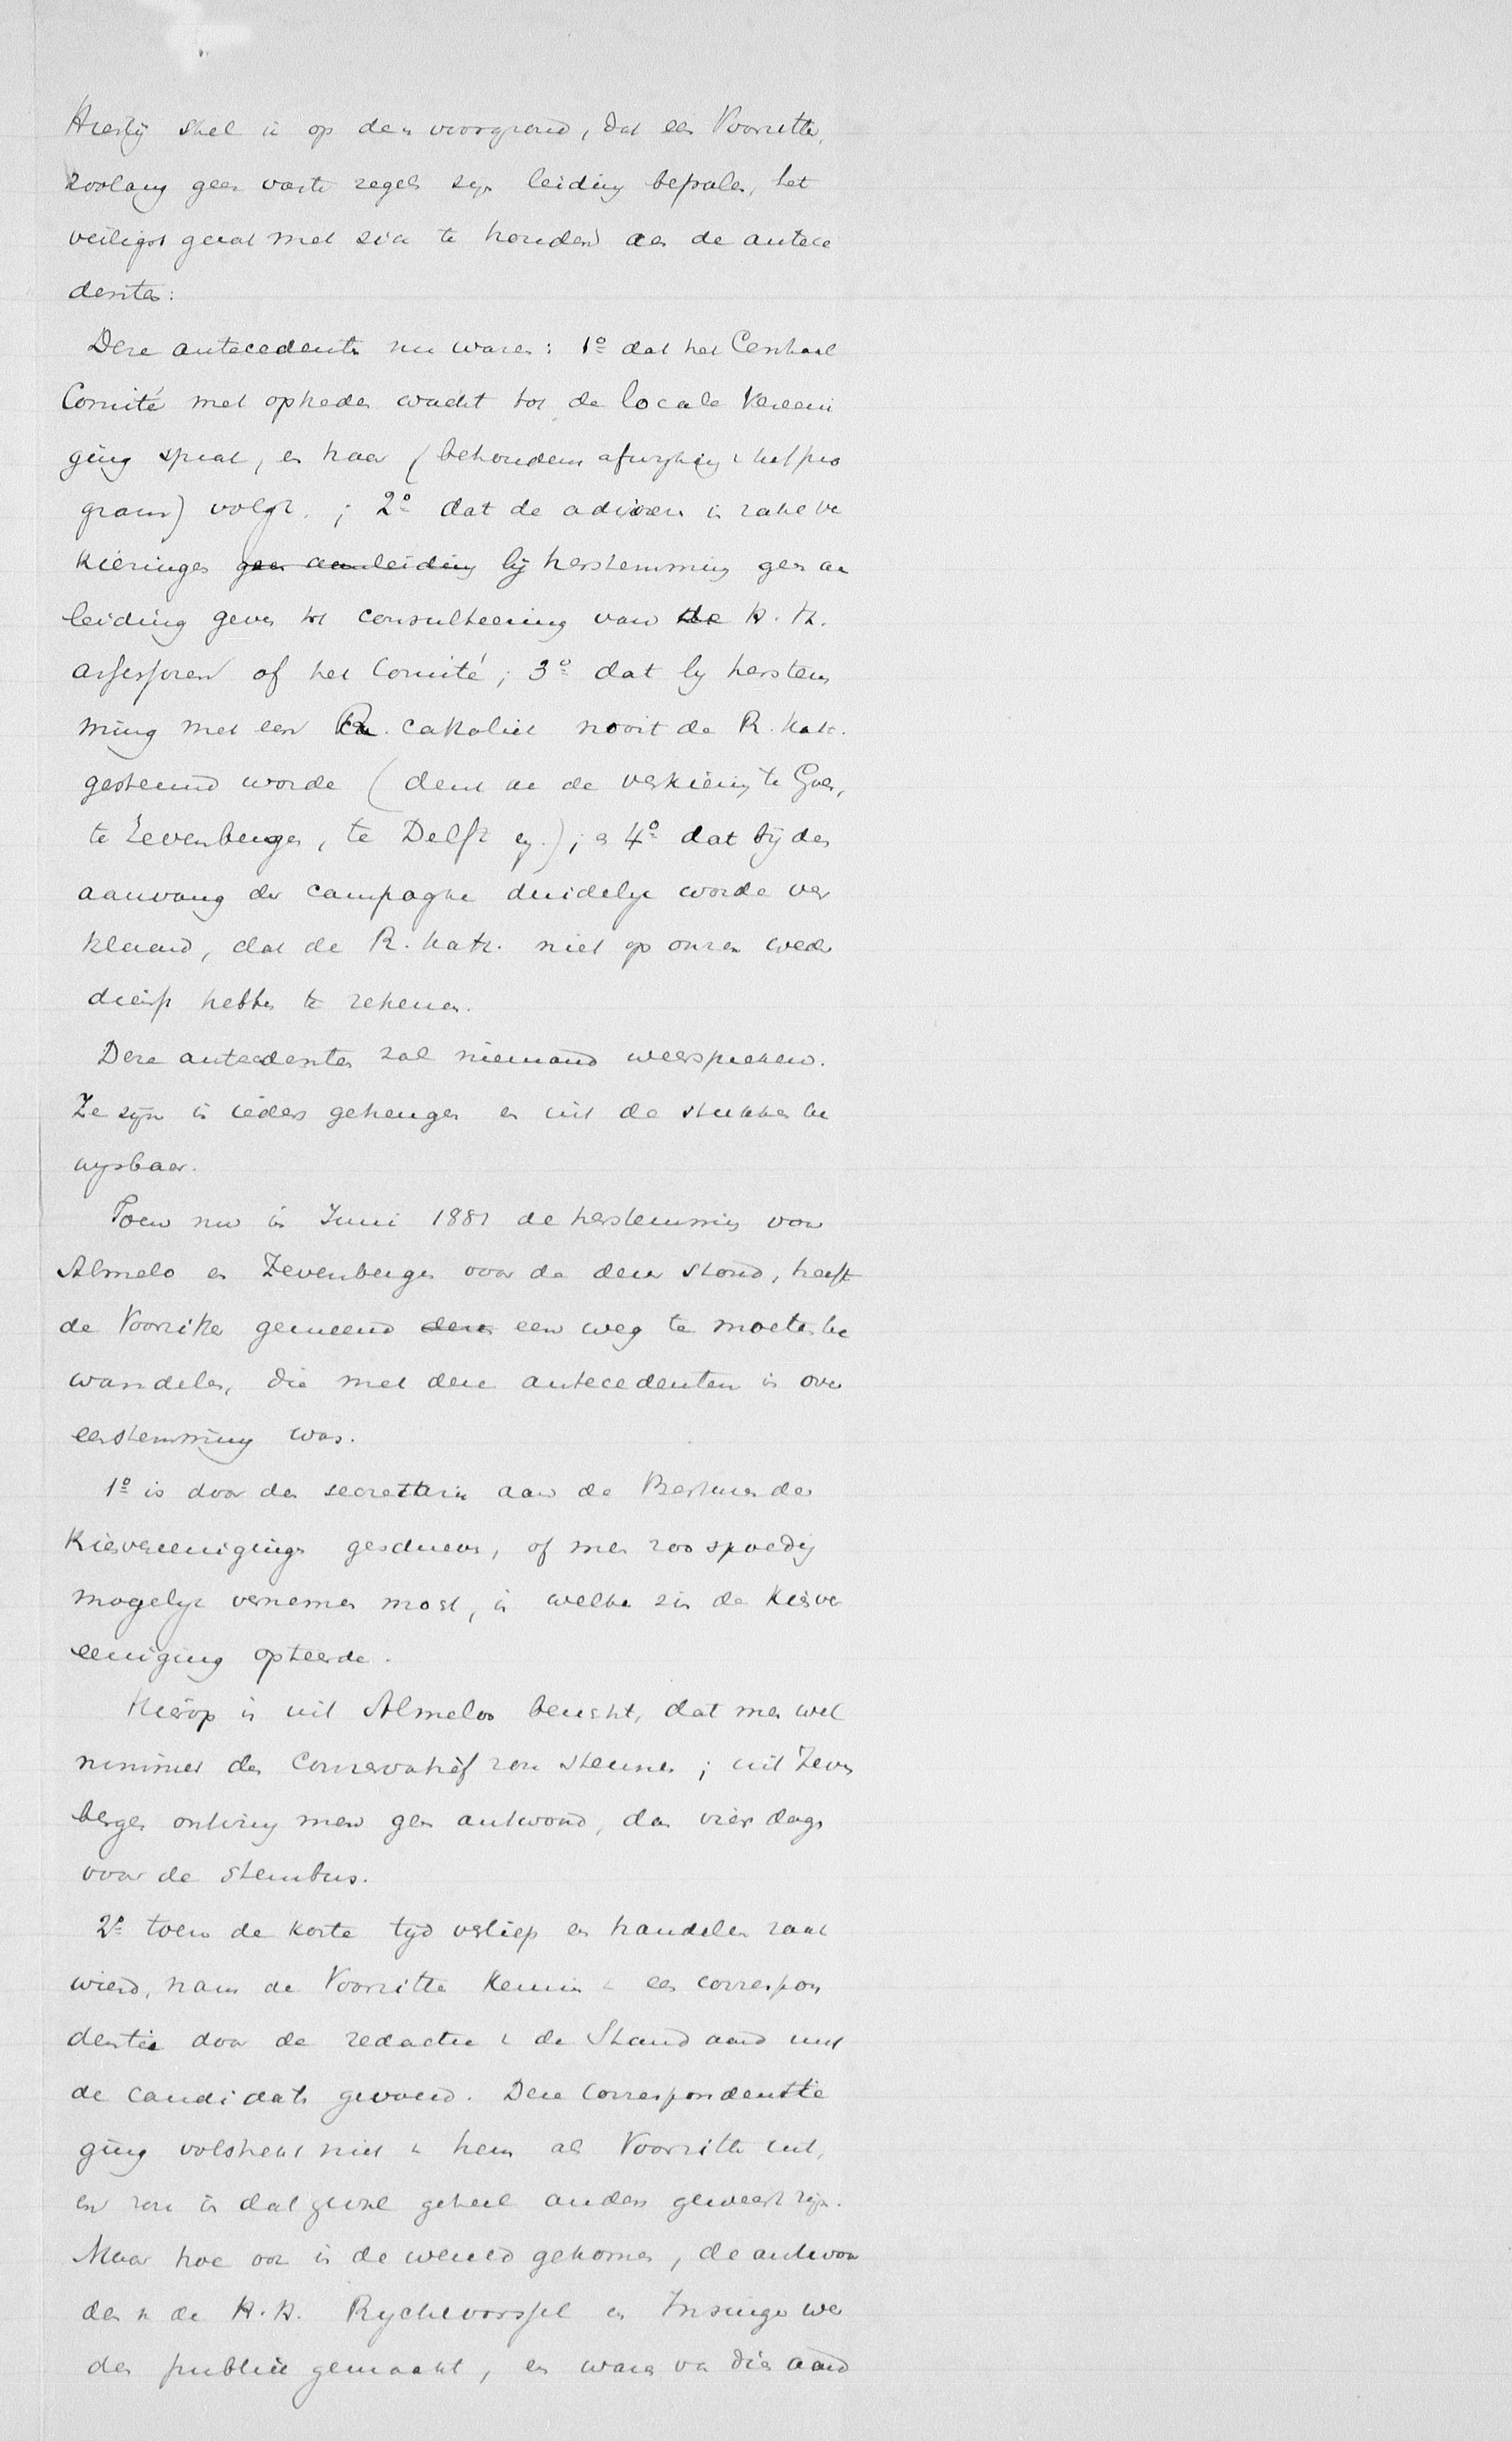 Hierbij stel ik op den voorgrond, dat een Voorzitter,
zoolang geen vaste regels zijn leiding bepalen, het
veiligst gaat met zich te houden aan de antece
denten:
Deze antecedenten nu waren: 1º dat het Centraal
Comité met optreden wacht tot de locale Vereeni
ging spreat, en haar (behoudens afwijking v. het pro
gram) volgt. ; 2º dat de adviezen in zake ver
kiezingen geen aanleiding bij herstemming geen aan
leiding geven tot consulteering van de H.H.
assessoren of het Comité; 3º dat bij herstem
ming met een R. catholiek nooit de R. Kath.
gesteund worde (denk aan de verkiezing te Goes,
te Zevenbergen, te Delft ); en 4º dat bij den
aanvang der campagne duidelijk worde ver
klaard, dat de R. Kath. niet op onzen weder
dienst hebben te rekenen.
Deze antecedenten zal niemand weerspreken.
Ze zijn in ieders geheugen en uit de stukken be
wijsbaar.
Toen nu in Juni 1881 de herstemming voor
Almelo en Zevenbergen voor de deur stond, heeft
de Voorzitter gemeend deze een weg te moeten be
wandelen, die met deze antecedenten in over
eenstemming was.
1º is door den secretaris aan de Besturen der
Kiesvereenigingen geschreven, of men zoo spoedig
mogelijk vernemen mocht, in welken zin de Kiesver
eeniging opteerde.
Hierop is uit Almeloo bericht, dat men wel
nimmer den Conservatief zou steunen; uit Zeven
bergen ontving men geen antwoord, dan vier dagen
voor de stembus.
2º toen de korte tijd verliep en handelen zaak
wierd, nam de Voorzitter kennis v. een correspon
dentie door de redactie v. de Standaard met
de candidaten gevoerd. Deze correspondentie
ging volstrekt niet v. hem als Voorzitter uit,
en zou in dat geval geheel anders geweest zijn.
Maar hoe ook in de wereld gekomen, de antwoor
den v. de H.H. Ryckevorssel en Insinger wer
den publiek gemaakt, en waren van dien aard